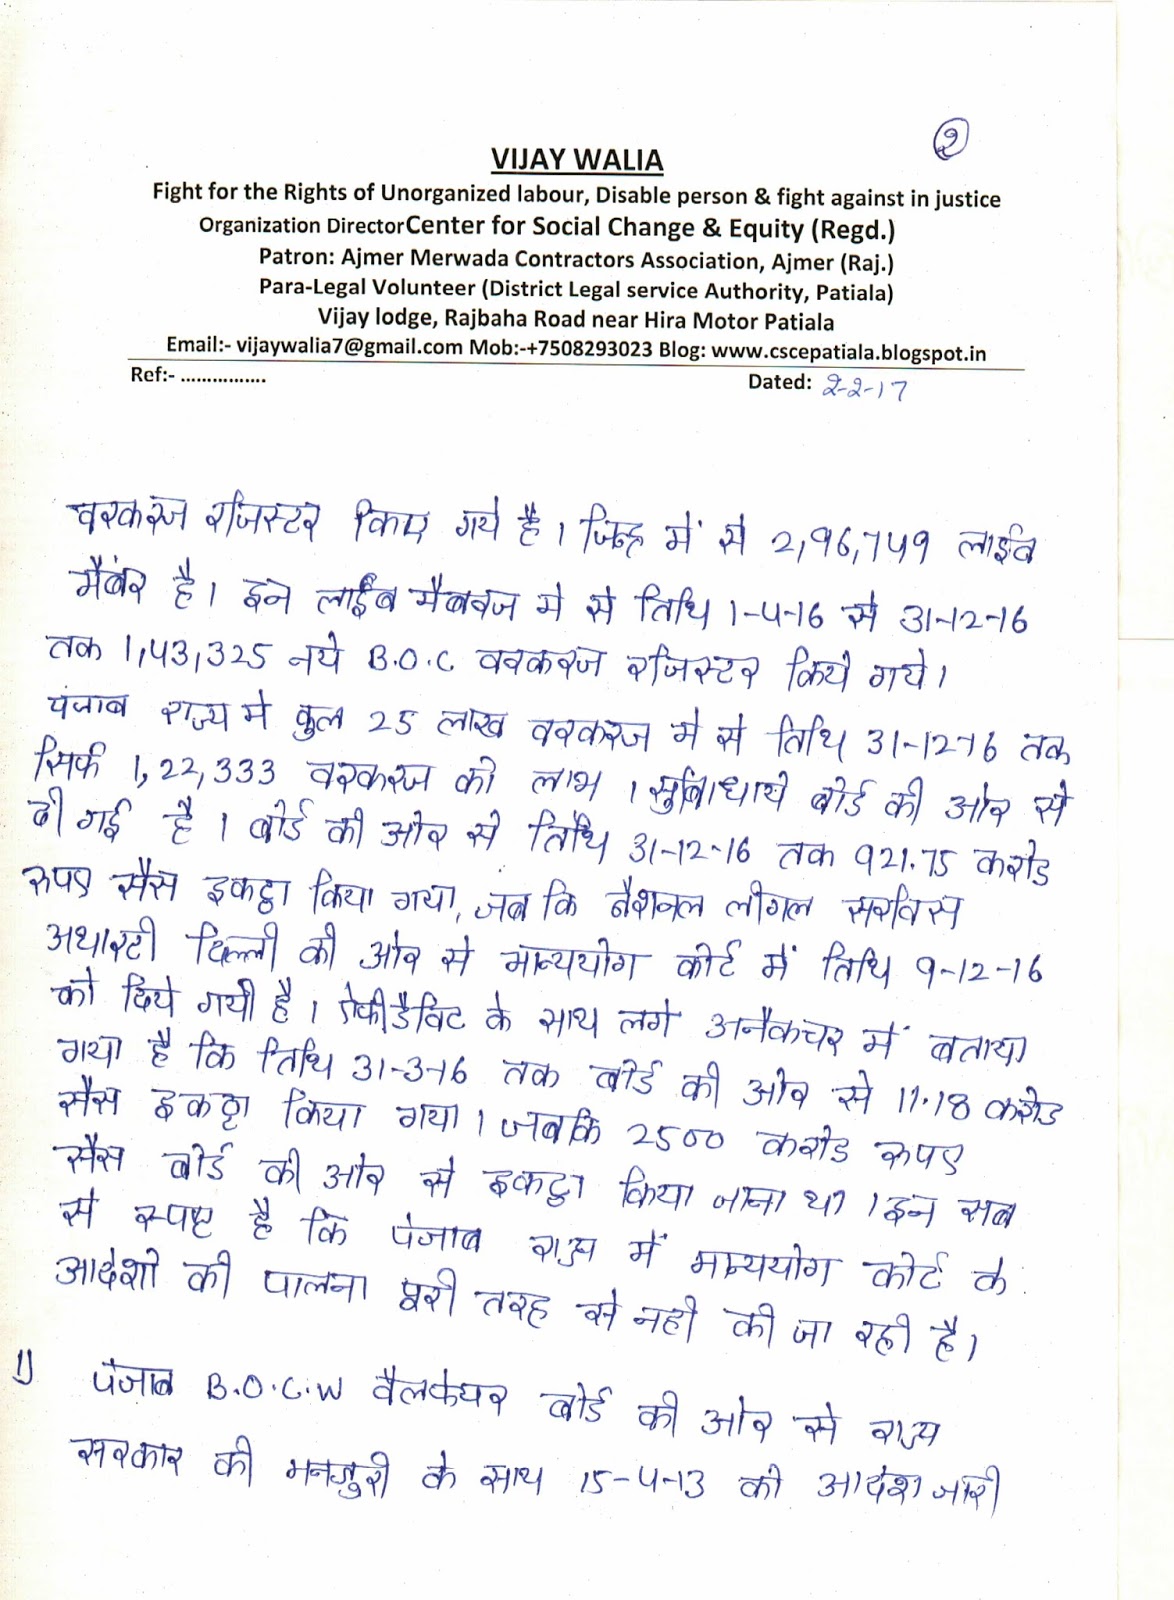 २
VIJAY WALIA
Fight for the Rights of Unorganized labour, Disable person & fight against in justice
Organization DirectorCenter for Social Change & Equity (Regd.)
Patron: Ajmer Merwada Contractors Association, Ajmer (Raj.)
Para-Legal Volunteer (District Legal service Authority, Patiala)
Vijay lodge, Rajbaha Road near Hira Motor Patiala
Email:- vijaywalia7@gmail.com Mob:-+7508293023 Blog: www.cscepatiala.blogspot.in
Ref:- ................ Dated: 2-2-17
वरकरज रजिस्टर किए गये है। जिन्ह में से 2,96,749 लाईव
मैंबर है। इन लाईब मैबवज मे से तिथि 1-4-16 से 31-12-16
तक 1,43,325 नये B.O.C वरकरज रजिस्टर किये गये।
पंजाब राज्य मे कुल 25 लाख वरकरज मे से तिथि 31-12-16 तक
सिर्फ 1,22,333 वरकरज को लाभ । सुबिधाये बोर्ड की ओर से
दी गई है। बोर्ड की ओर से तिथि 31-12-16 तक 921.75 करोड
रुपए सैस इकट्ठा किया गया, जब कि नैशनल लीगल सरविस
अथारटी दिल्ली की ओर से मान्ययोग कोर्ट में तिथि 9-12-16
को दिये गयी है। ऐफीडैविट के साथ लगे अनैकचर में बताया
गया है कि तिथि 31-3-16 तक बोर्ड की ओर से 11.18 करोड
सैस इकठ्ठा किया गया। जबकि 2500 करोड रुपए
सैस बोर्ड की ओर से इकट्ठा किया जाना था। इन सब
से स्पष्ट है कि पंजाब राज्य में मान्ययोग कोर्ट के
आदेशो की पालना पूरी तरह से नही की जा रही है।
1) पंजाब B.O.C.W वैलफेयर बोर्ड की ओर से राज्य
सरकार की मनजुरी के साथ 15-4-13 को आदेश जारी